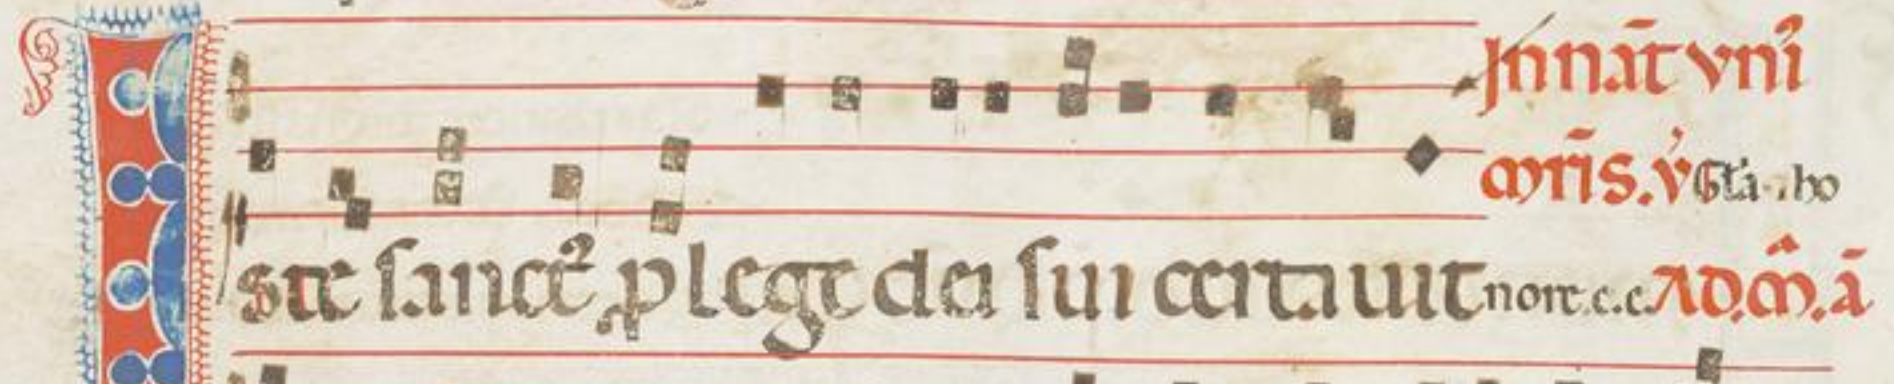 Jn nat̄ vni᷒
mr̄is. v̾ Gła. ho
Iste sanct᷒ ꝓ lege dei sui certauit nore. c. c. AD. M̂. ā